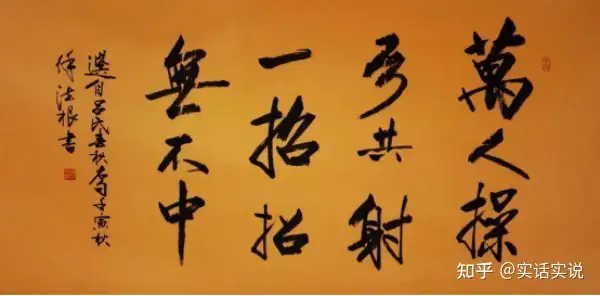 萬人操
弓共射
一招招
無不中
選自吕氏春秋句壬寅秋
法根書
知乎 @实话实说